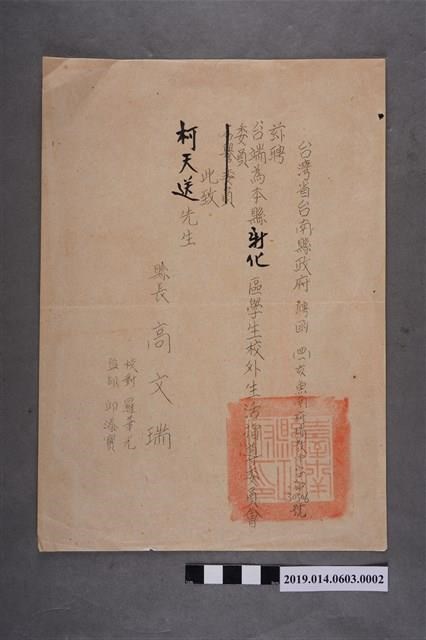 台灣省台南縣政府 聘函
兹聘
台端為本縣新化區學生校外生活指導委員會
委員
此致
柯天送先生
縣長 高文瑞
校對 羅華光
監印 邱添寶
2019.014.0603.0002